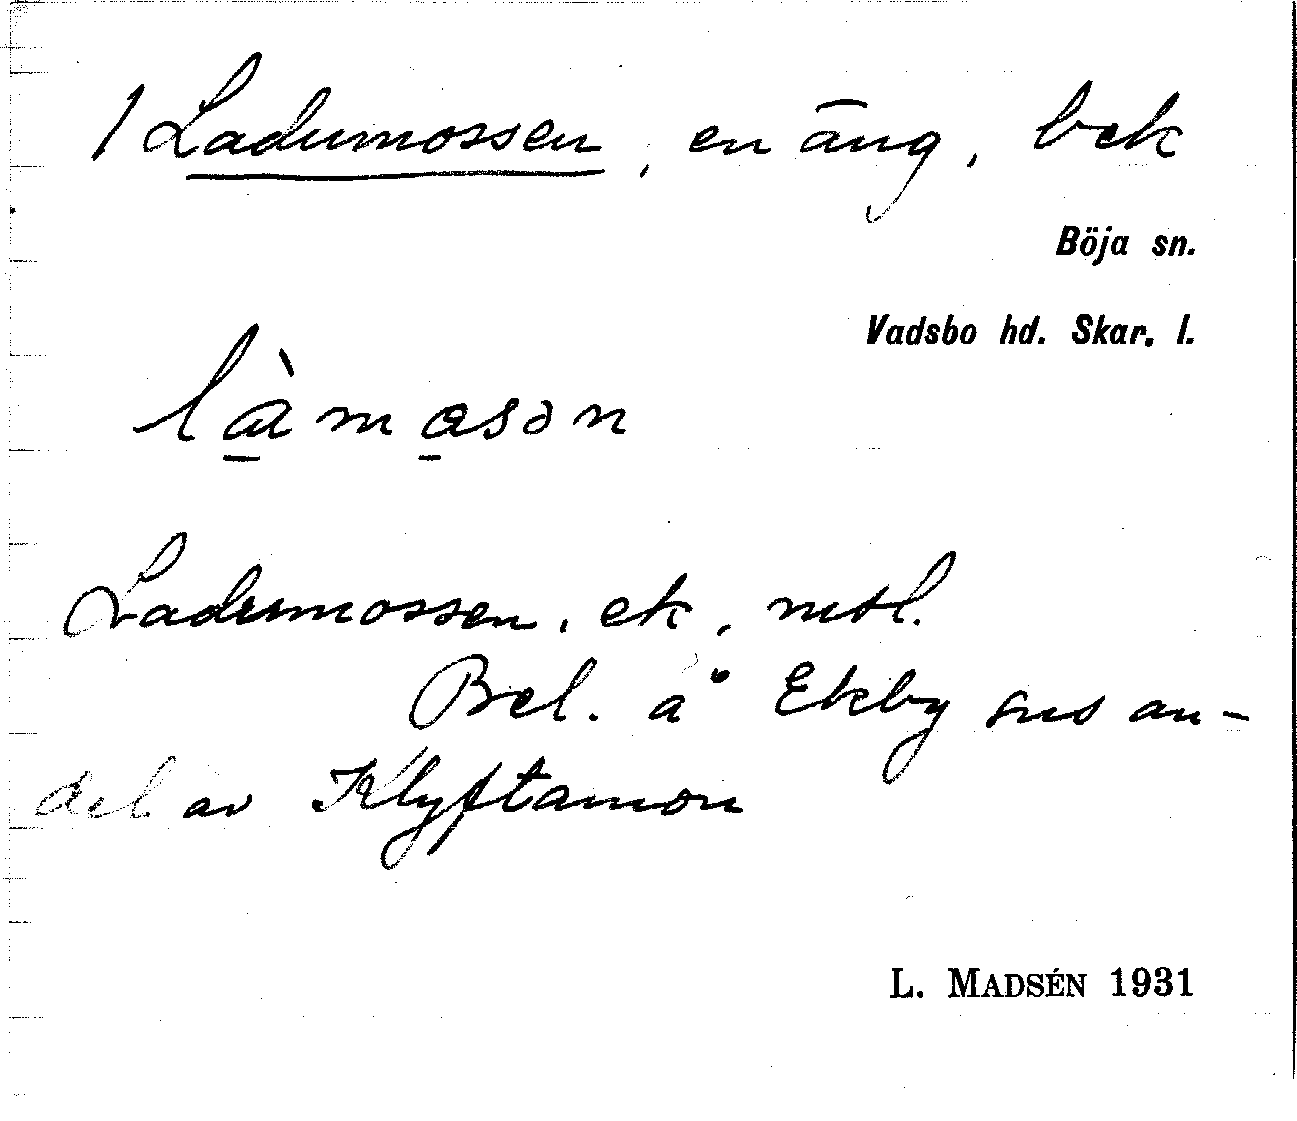 1 Ladumossen, en äng, bek
Böja sn.
Vadsbo hd. Skar. l.
làmosən
Ladumossen, ek, mtl.
Bel. å Ekby sns an-
del av Klyftamon
L. MADSÉN 1931